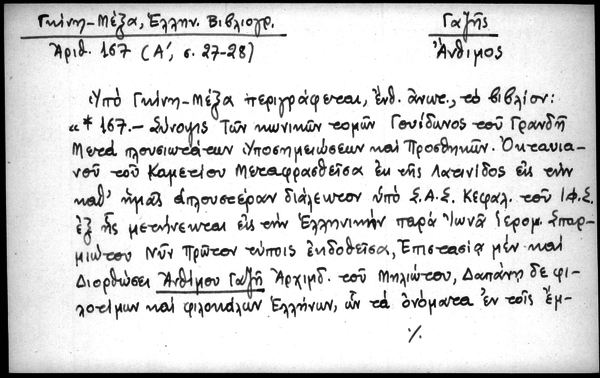 Γκίνη-Μέξα, Ἑλλην. Βιβλιογρ.
Γαζῆς
Ἀριθ. 167 (Α΄, σ. 27-28)
Ἄνθιμος
Ὑπό Γκίνη-Μέξα περιγράφεται, ἐνθ. ἀνωτ., τό βιβλίον:
«* 167.- Σύνοψις Τῶν κωνικῶν τομῶν Γουίδωνος τοῦ Γρανδῆ
Μετά πλουσιωτάτων Ὑποσημειώσεων καί Προσθηκῶν. Ὀκταυια-
νοῦ τοῦ Καμετίου Μεταφρασθεῖσα ἐκ τῆς Λατινίδος εἰς τήν
καθ' ἡμᾶς ἁπλουστέραν διάλεκτον ὑπό Σ.Α.Σ. Κεφαλ. τοῦ ΙΦ.Σ.
ἐξ ἧς μετήνεκται εἰς τήν Ἑλληνικήν παρά Ἰωνᾶ Ἱερομ. Σπαρ-
μιώτου Νῦν Πρῶτον τύποις ἐκδοθεῖσα, Ἐπιστασίᾳ μέν καί
Διορθώσει Ἀνθίμου Γαζῆ Ἀρχιμδ. τοῦ Μηλιώτου, Δαπάνῃ δε φι-
λοτίμων καί φιλοκάλων Ἑλλήνων, ὧν τά ὀνόματα ἐν τοῖς ἔμ-
·/.